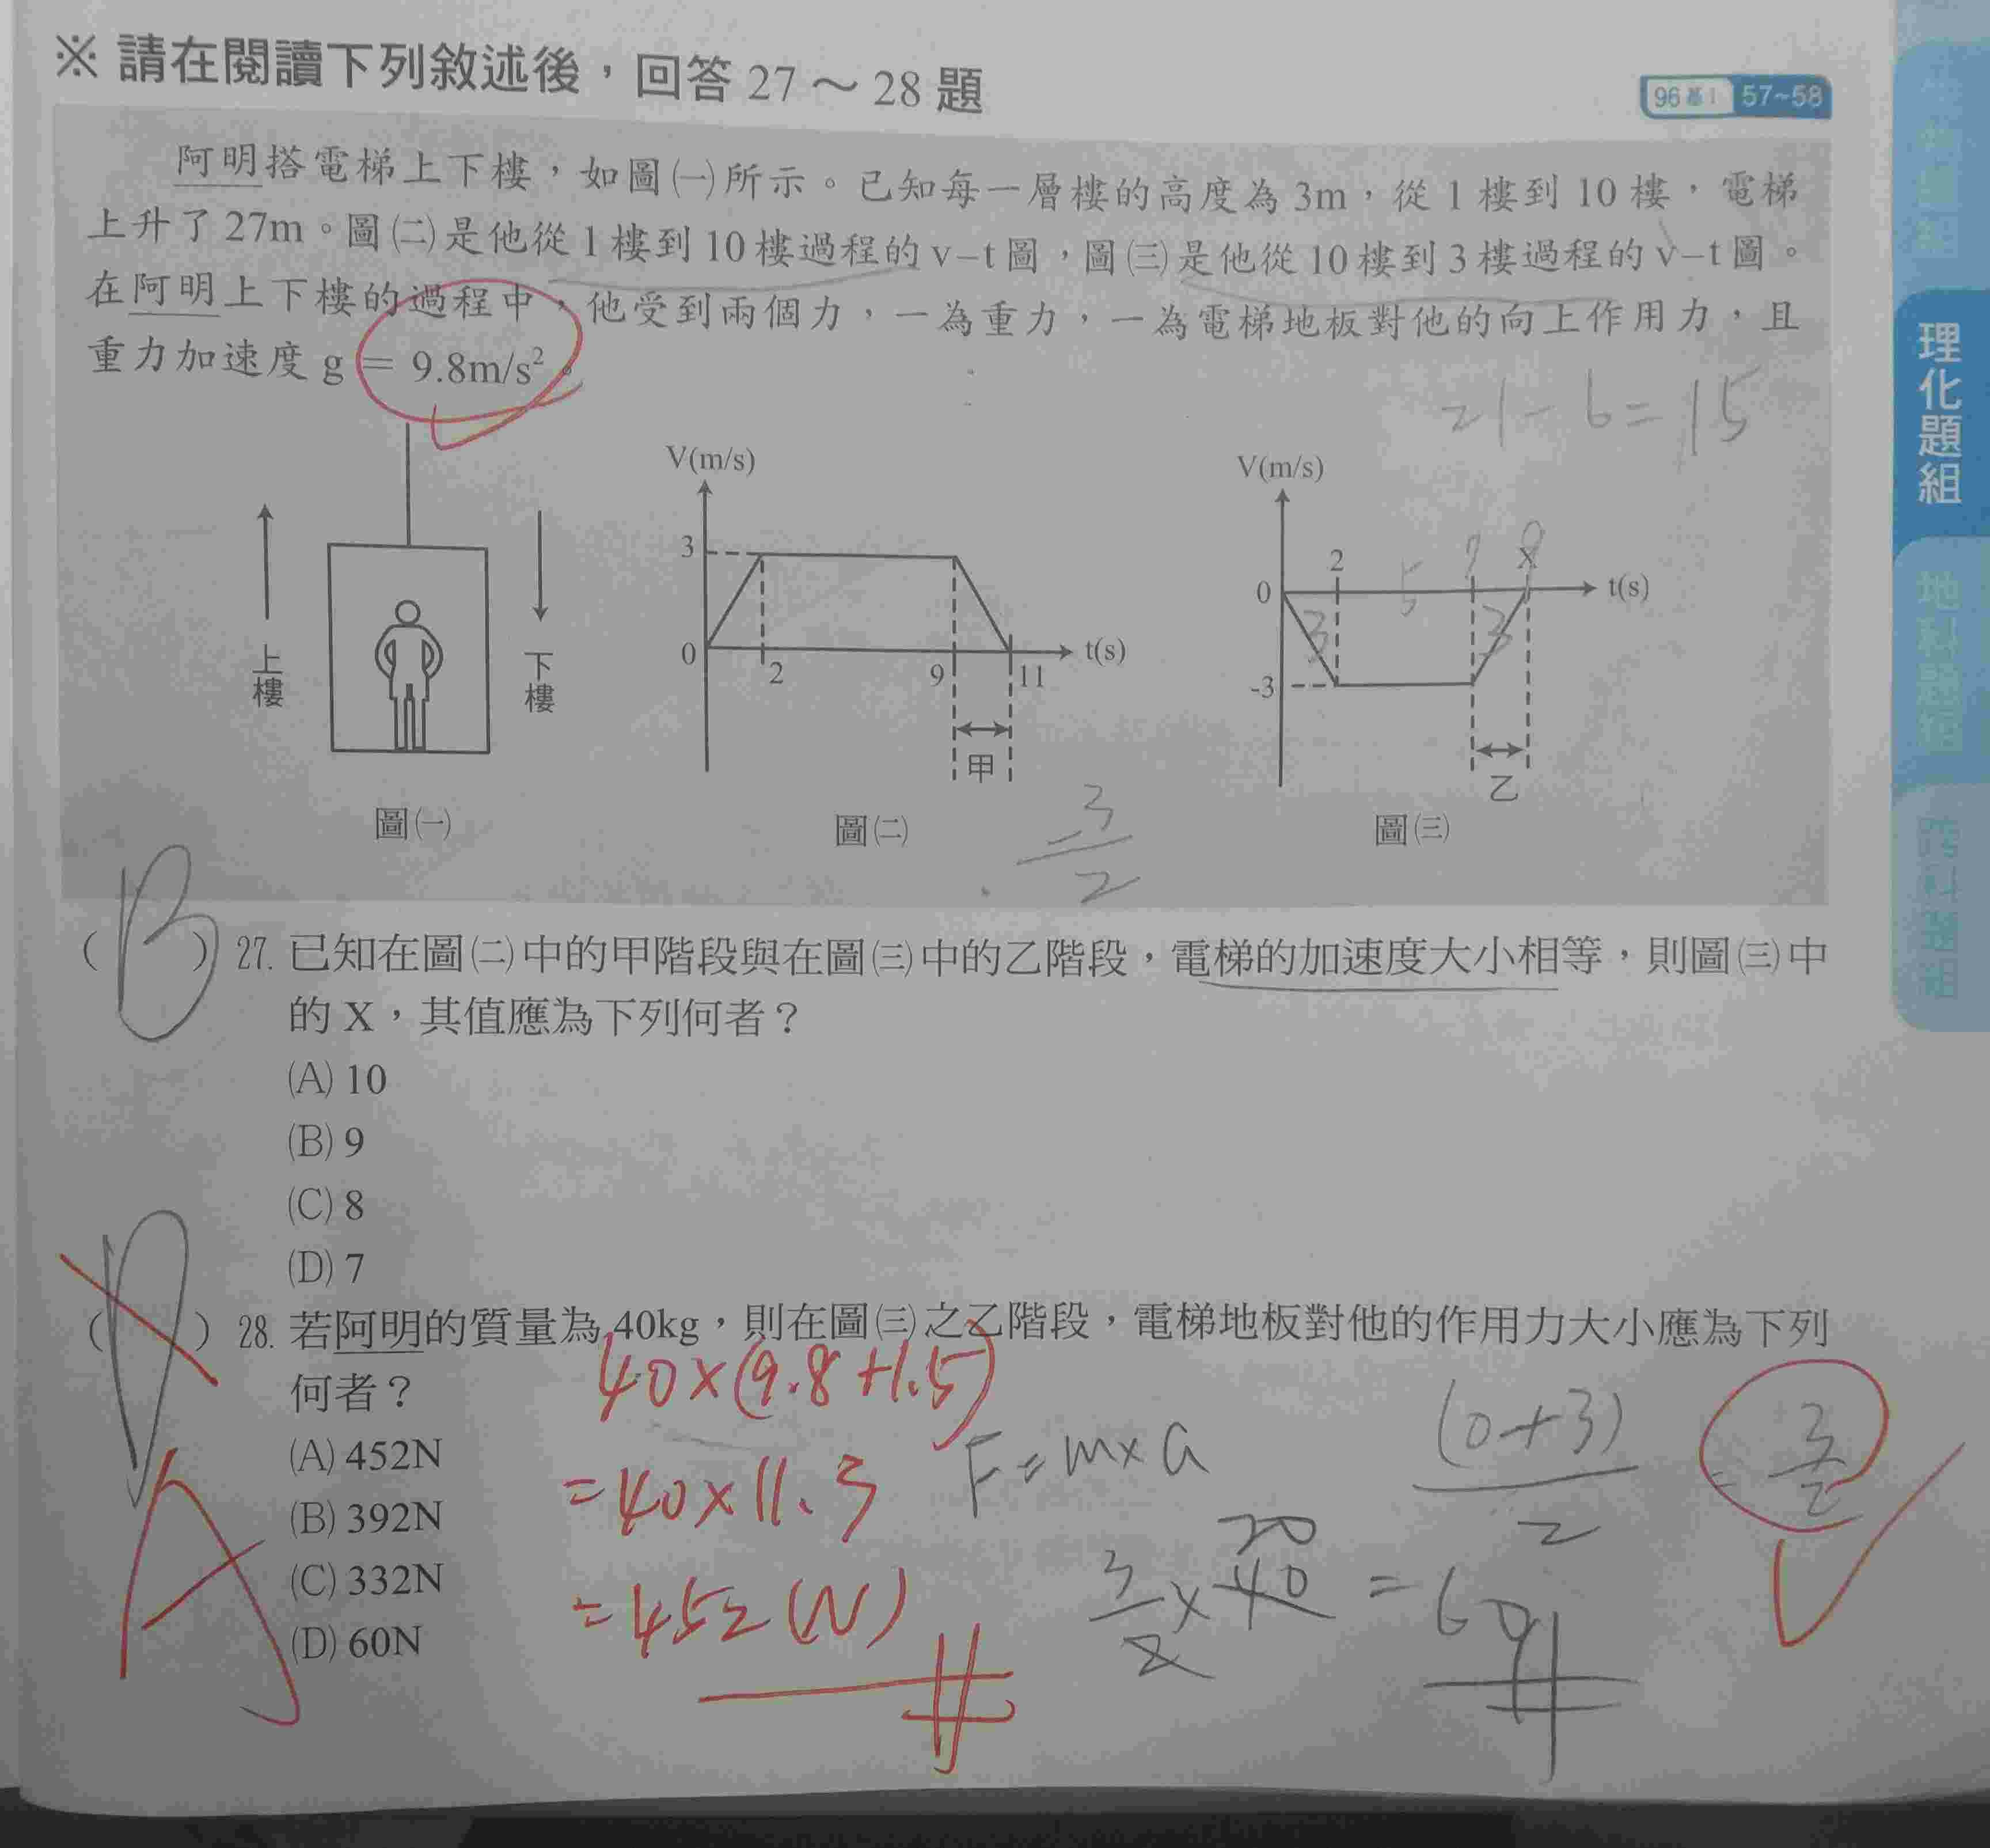 ※ 請在閱讀下列敘述後，回答 27～28 題
96基I 57~58
阿明搭電梯上下樓，如圖㈠所示。已知每一層樓的高度為 3m，從 1 樓到 10 樓，電梯
上升了 27m。圖㈡是他從 1 樓到 10 樓過程的 v–t 圖，圖㈢是他從 10 樓到 3 樓過程的 v–t 圖。
在阿明上下樓的過程中，他受到兩個力，一為重力，一為電梯地板對他的向上作用力，且
重力加速度 g = 9.8m/s²。
21-6=15
上樓
下樓
圖㈠
V(m/s)
3
0
2
9
11
t(s)
甲
圖㈡
3
2
V(m/s)
0
2
5
7
X
9
t(s)
3
3
-3
乙
圖㈢
(B) 27. 已知在圖㈡中的甲階段與在圖㈢中的乙階段，電梯的加速度大小相等，則圖㈢中
的 X，其值應為下列何者？
(A) 10
(B) 9
(C) 8
(D) 7
(D) 28. 若阿明的質量為 40kg，則在圖㈢之乙階段，電梯地板對他的作用力大小應為下列
何者？
(A) 452N
(B) 392N
(C) 332N
(D) 60N
A
40×(9.8+1.5)
=40×11.3
=452(N)
F=m×a
(0+3)
2
= 3
2
3/2 × 40 = 60
20
理化題組
地科題組
跨科題組